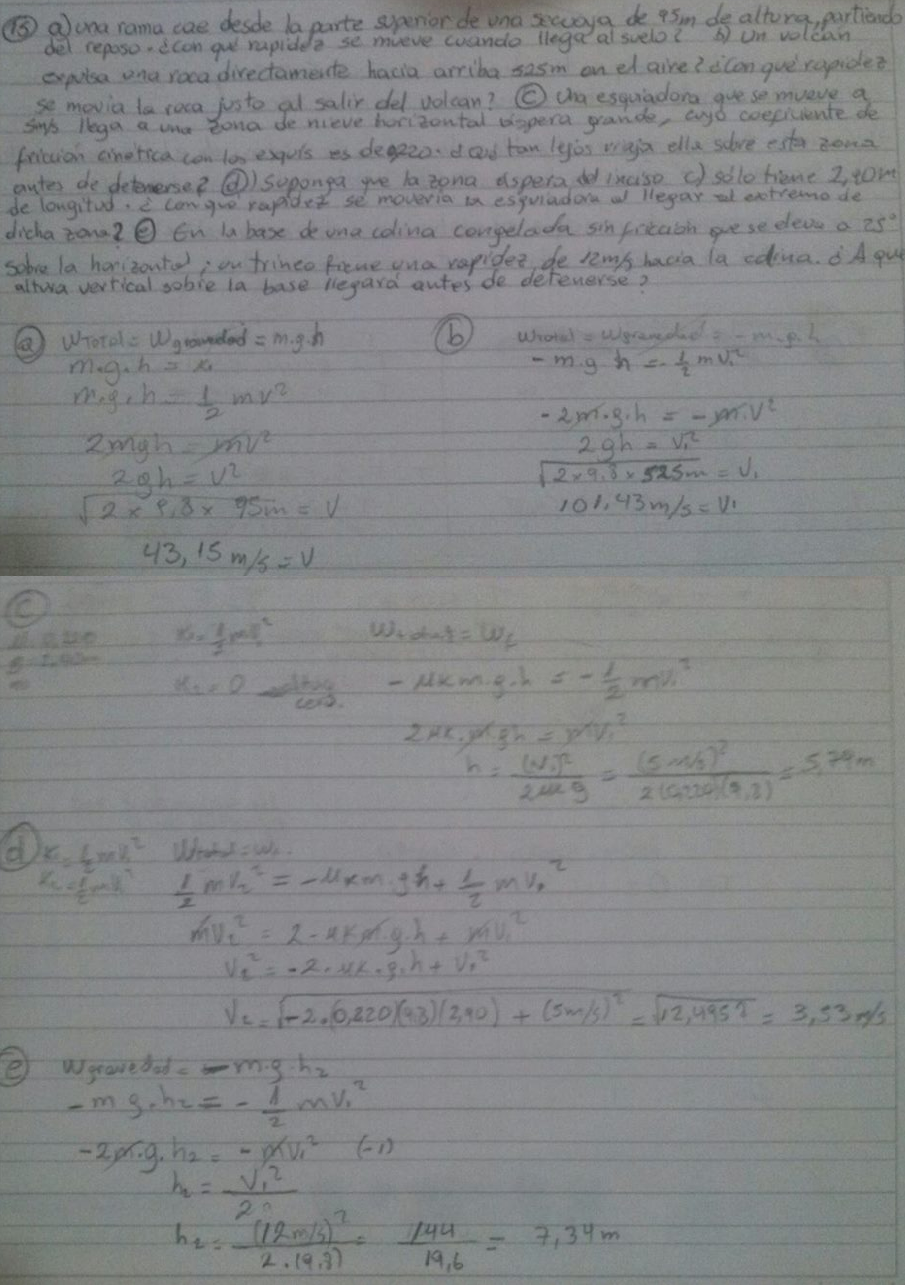 (15) a) una rama cae desde la parte superior de una secuoya de 95m de altura, partiendo
del reposo. ¿con qué rapidez se mueve cuando llega al suelo? b) Un volcán
expulsa una roca directamente hacia arriba 525m en el aire? ¿Con qué rapidez
se movia la roca justo al salir del volcan? (c) Una esquiadora que se mueve a
5m/s llega a una zona de nieve horizontal áspera grande, cuyo coeficiente de
fricción cinetica con los esquís es de 0,220. ¿Qué tan lejos viaja ella sobre esta zona
antes de detenerse? (d) Suponga que la zona áspera del inciso c) sólo tiene 2,90m
de longitud. ¿con qué rapidez se moveria la esquiadora al llegar al extremo de
dicha zona? (e) En la base de una colina congelada sin fricción que se eleva a 25°
sobre la horizontal, un trineo tiene una rapidez de 12m/s hacia la colina. ¿A que
altura vertical sobre la base llegará antes de detenerse?
(a) WTotal = Wgravedad = m.g.h
m.g.h = K
m.g.h = 1/2 mv²
2mgh = mv²
2gh = v²
√2 x 9,8 x 95m = V
43,15 m/s = V
(b) Wtotal = Wgravedad = - m.g.h
- m.g h = - 1/2 mV₁²
-2m.g.h = -m.V²
2gh = V₁²
√2x9,8x525m = V₁
101,43 m/s = V₁
(c)
K₁ = 1/2 mV₁²
K₂ = 0
- μK m.g.h = - 1/2 mV₁²
2μK.mgh = mV₁²
h = (V₁)²/2μK g = (5m/s)²/2(0,220)(9,8) = 5,79m
(d) K₁ = 1/2 mV₁²
K₂ = 1/2 mV₂²
1/2 mV₂² = -μKm.gh + 1/2 mV₁²
mV₂² = 2-μKm.g.h + mV₁²
V₂² = -2.μK.g.h + V₁²
V₂ = √-2.(0,220)(9,8)(2,90) + (5m/s)² = √12,4952 = 3,53 m/s
(e) Wgravedad = -m.g.h₂
-m g.h₂ = - 1/2 mV₁²
-2m.g.h₂ = - mV₁² (-1)
h₂ = V₁²/2g
h₂ = (12m/s)²/2.(9,8) = 144/19,6 = 7,34m